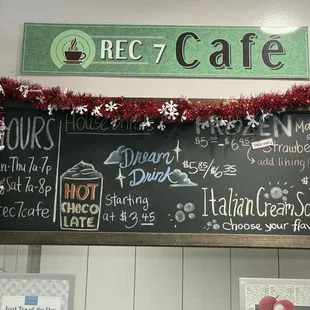 REC 7 Café
OURS
n-Thu 7a-7p
Sat 7a-8p
rec7cafe
HOT
CHOCO
LATE
Dream
Drink
Starting
at $3.45
$5-$6.45
$5.85/$6.35
add lining!
Italian Cream So
choose your fla
Iced Tea of the Day